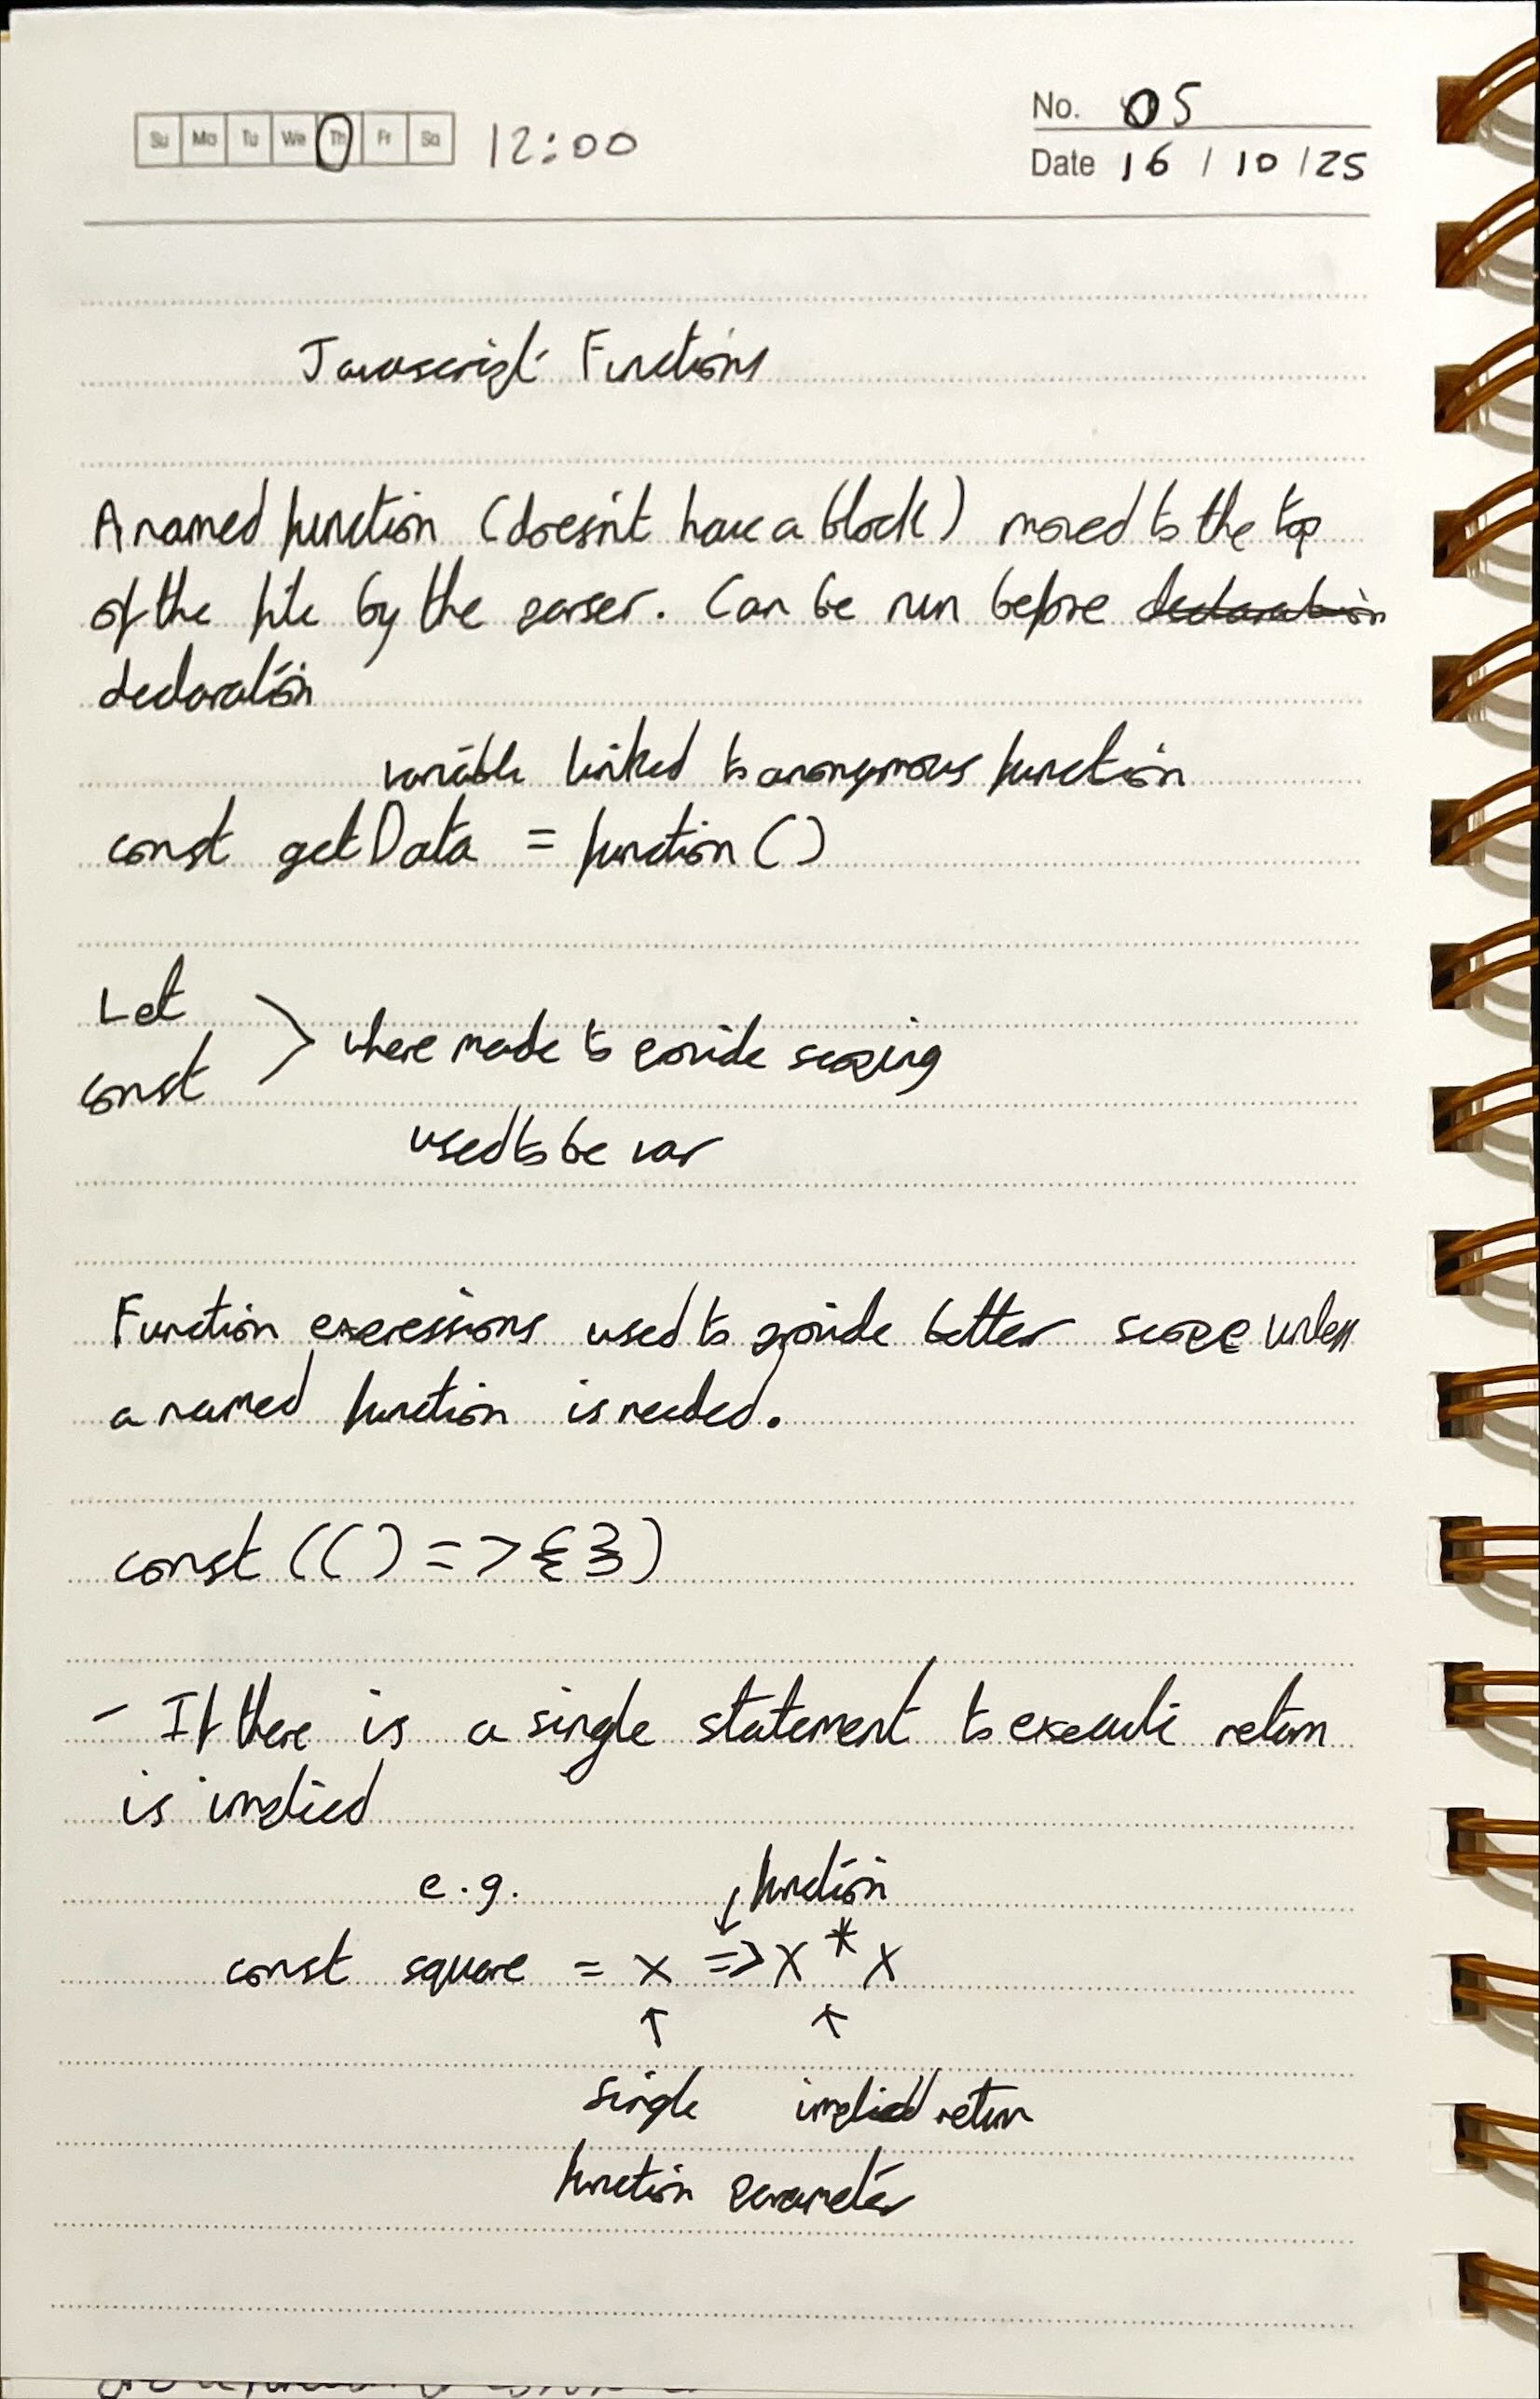 Su Mo Tu We Th Fr Sa 12:00
No. 05
Date 16 / 10 / 25
Javascript Functions
A named function (doesn't have a block) moved to the top
of the file by the parser. Can be run before declaration
declaration
variable linked to anonymous function
const getData = function()
Let
const > where made to provide scoping
used to be var
Function expressions used to provide better scope unless
a named function is needed.
const (() => {})
- If there is a single statement to execute return
is implied
e.g. function
const square = x => x * x
single implied return
function parameter